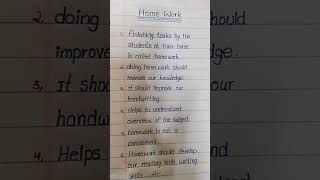 Home Work
1. Finishing tasks by the
students at their home
is called homework.
2. doing home work should
improve our knowledge.
3. It should improve our
handwriting.
4. Helps to understand
overview of the subject.
5. homework is not a
punishment.
6. Homework should develop
our reading skills, writing
skills etc